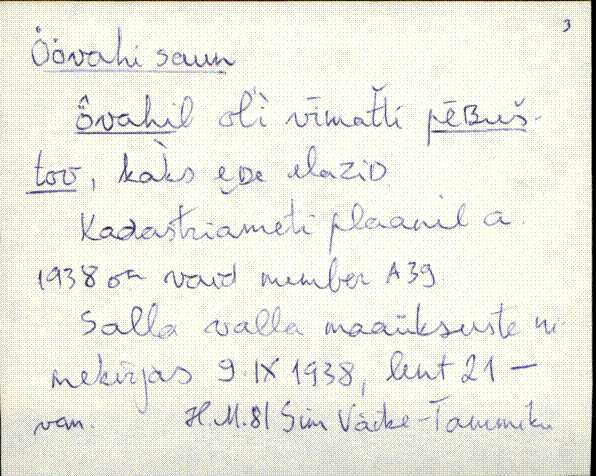 3
Öövahi saun
Ȫvahil ol'i vīmat́ti pēʙuš-
too, kàks eᴅe elaziᴅ
Kadastriameti plaanil a
1938 on vaid number A39
Salla valla maaüksuste ni
mekirjas 9.IX 1938, leht 21 —
van. H.M.81 Sim Väike-Tammiku